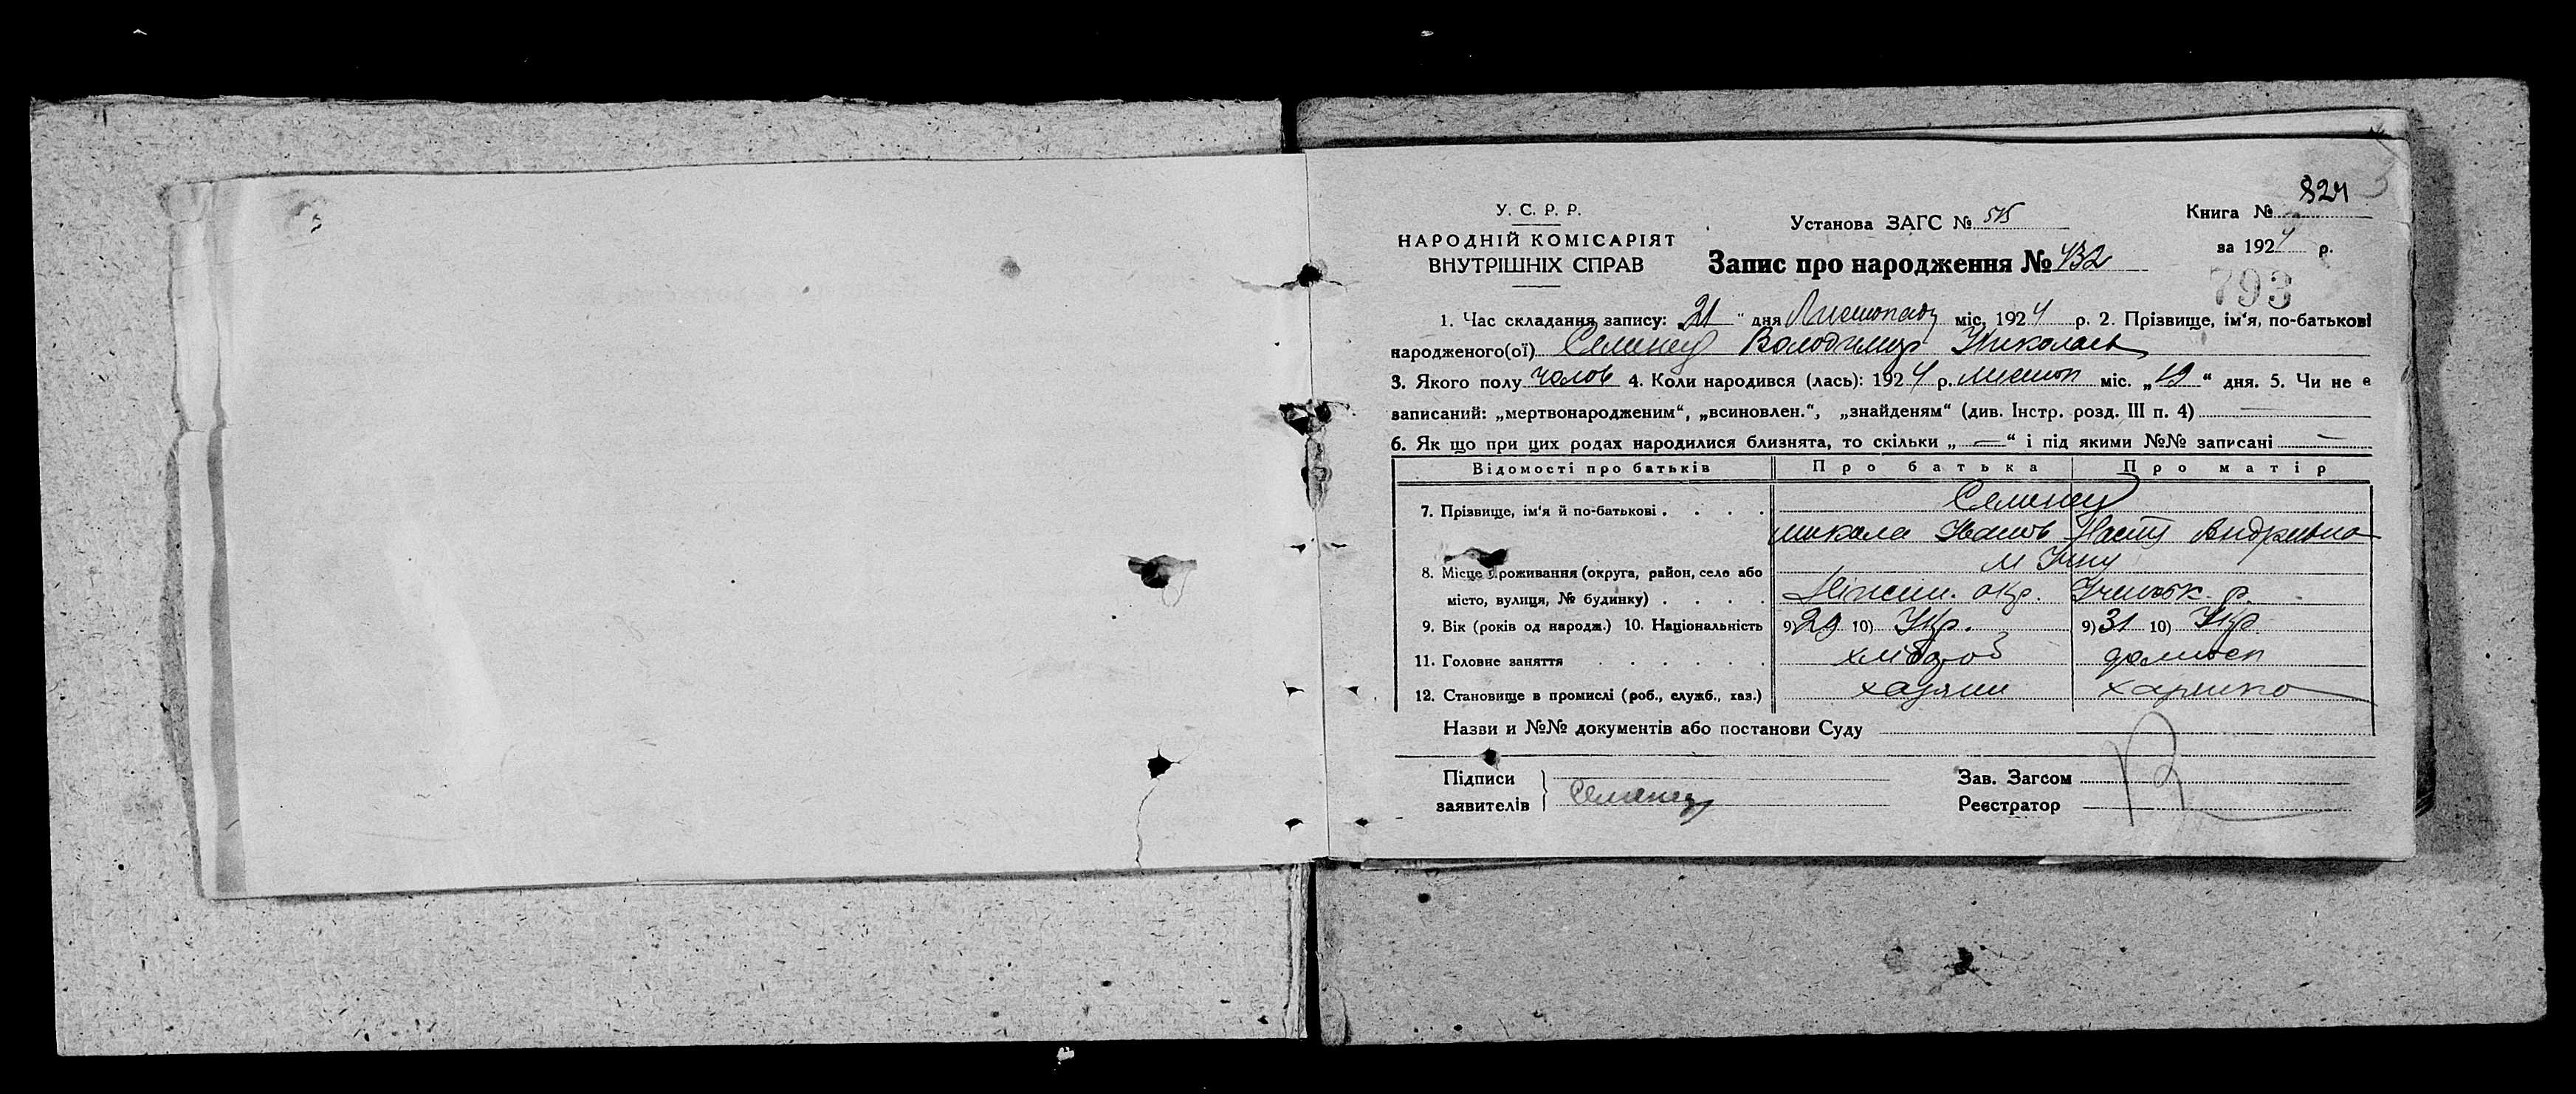 824
У. С. Р. Р.
НАРОДНІЙ КОМІСАРІЯТ
ВНУТРІШНІХ СПРАВ
Установа ЗАГС № 515
Книга №
за 1924 р.
Запис про народження № 432
793
1. Час складання запису: „21“ дня Листопаду міс. 1924 р. 2. Прізвище, ім‘я, по-батькові
народженого(ої) Семенец Володимир Миколаєв
3. Якого полу чолов 4. Коли народився (лась): 1924 р. листоп міс. „19“ дня. 5. Чи не є
записаний: „мертвонародженим“, „всиновлен.“, „знайденям“ (див. Інстр. розд. III п. 4) —
6. Як що при цих родах народилися близнята, то скільки „—“ і під якими №№ записані —
Відомості про батьків Про батька Про матір
7. Прізвище, ім‘я й по-батькові . . . . Семенец
микола Іванов Настя Андреевна
8. Місце проживання (округа, район, село або м Ічня
місто, вулиця, № будинку) . . . . Ніжин. окр. Ічнянськ. р.
9. Вік (років од народж.) 10. Національність 9) 29 10) Укр. 9) 31 10) Укр.
11. Головне заняття . . . . . . хлібороб домогосп
12. Становище в промислі (роб., служб., хаз.) хазяин
Назви и №№ документів або постанови Суду
Підписи
заявителів } Семенец
Зав. Загсом
Реєстратор